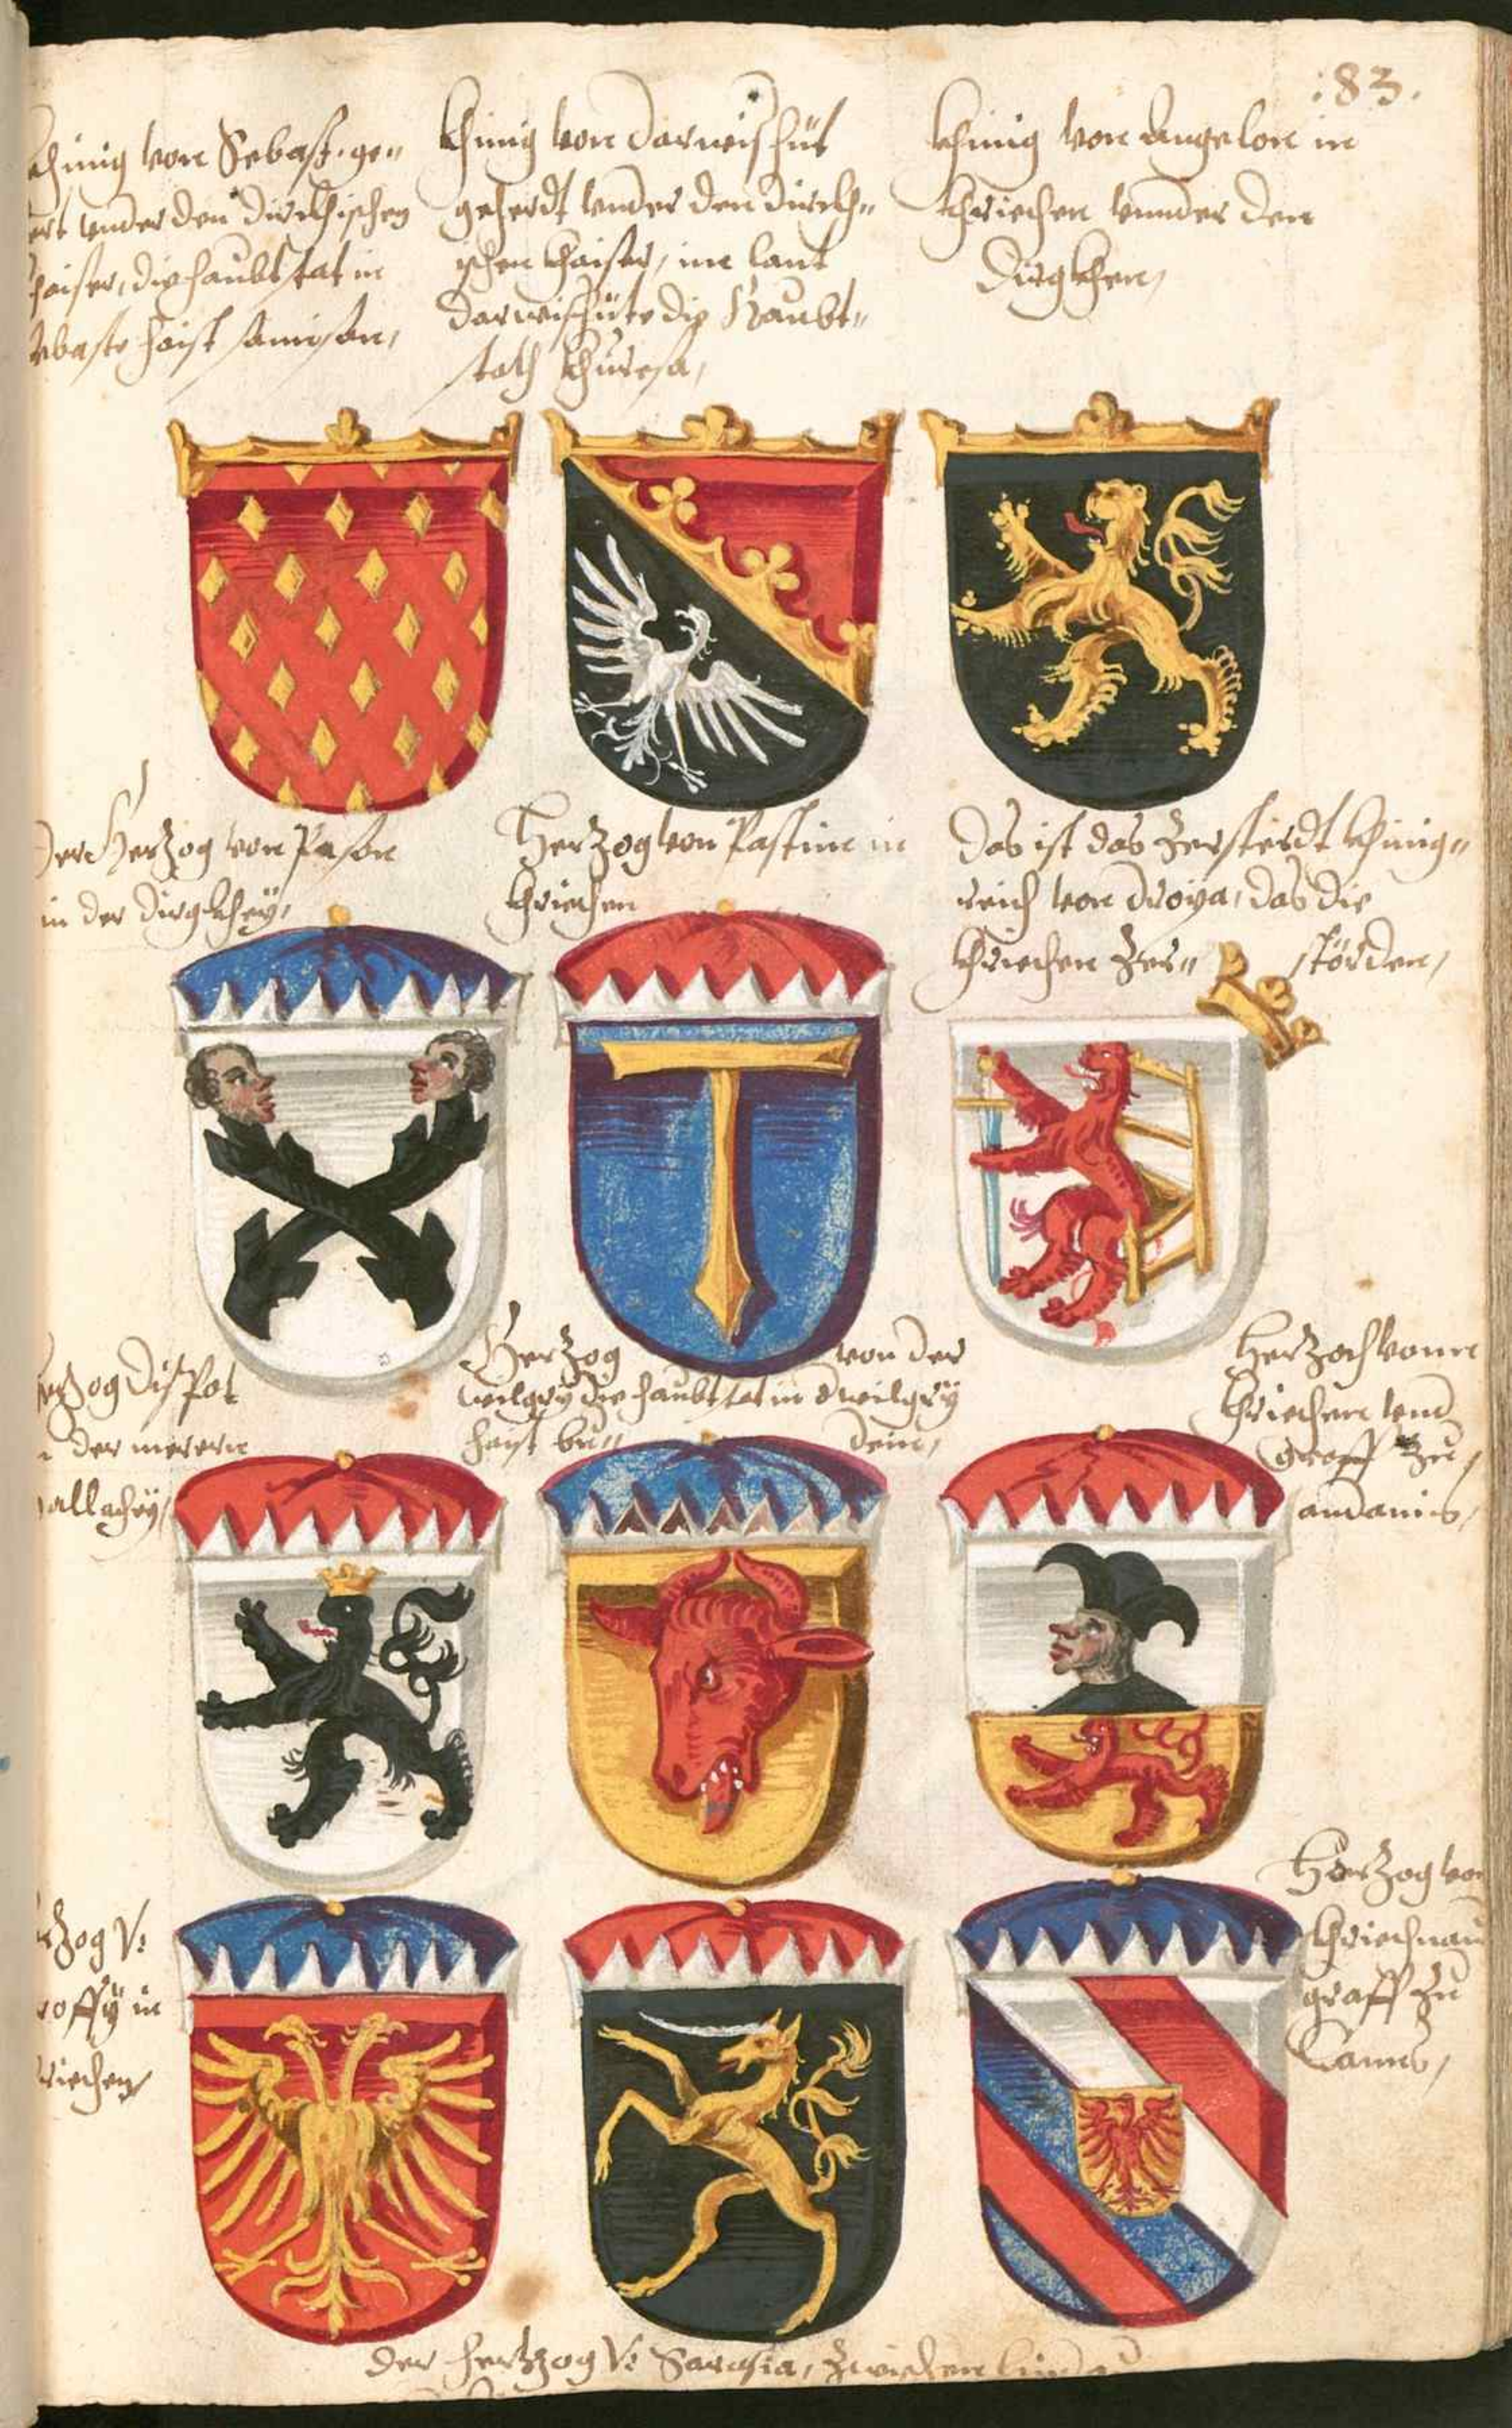 :83.
khinig von Sebast. ge„
ert vnder den Dirkhischen
khaiser, die haubtstat in
ebaste haist samison,
khinig von Darwishüt
geherdt vnder den dirckh„
ischen khaiser, im lant
Darwishüte die Haubt„
stath khuresa,
khinig von Angelon in
khriechen vnnder den
Dirgkhen,
Der Herzog von Pason
in der Dirgkhey,
Herzog von Pastine in
khriechen
Das ist das Zersterdt khinig„
reich von Droya, das die
khriechen Zer„ störden,
Herzog Dispot
in der merern
allachey,
Herzog von der
wilgry die haubtstat in wilgry
haist bu„ dein,
Herzoch vonn
khriechen vnd
graff zu
andanis,
zog V:
roffÿ in
riechen,
Herzog von
khriechnau
graff zu
Cannis,
Der hertzog V: Sarasia, zwischen